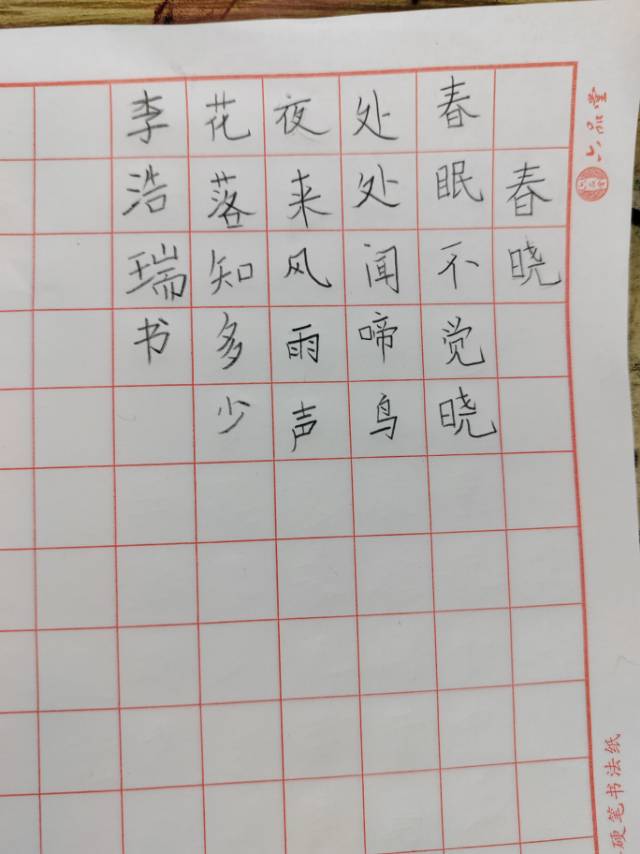 春晓
春眠不觉晓
处处闻啼鸟
夜来风雨声
花落知多少
李浩瑞书
六品堂
硬笔书法纸